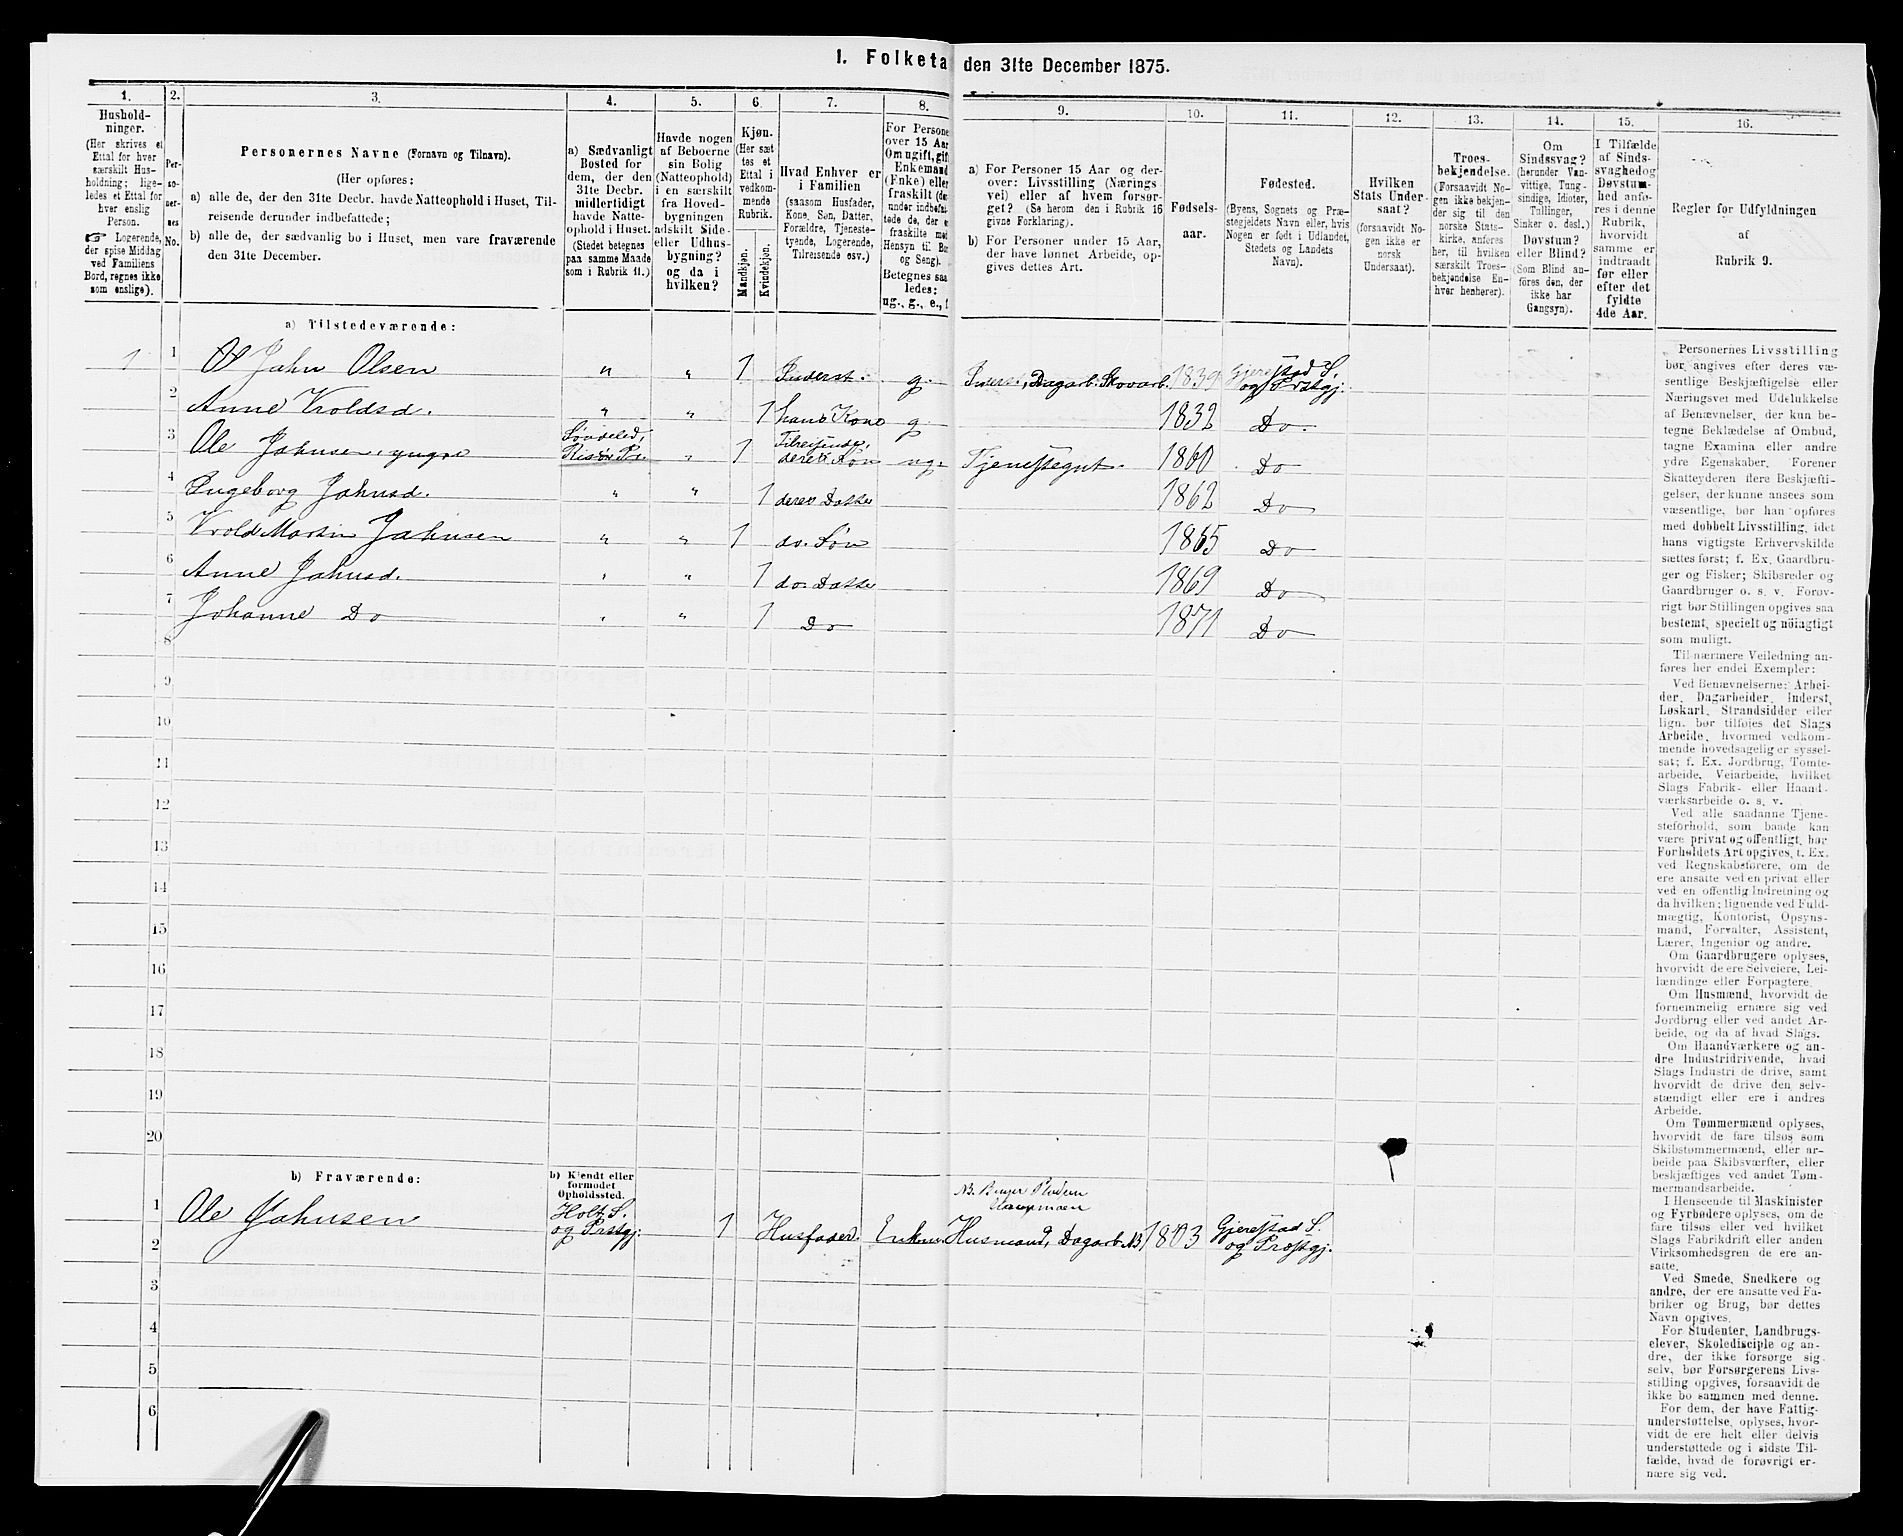 1. Folketa den 31te December 1875.
1. 2. 3. 4. 5. 6. 7. 8. 9. 10. 11. 12. 13. 14. 15. 16.
Hushold-
ninger.
(Her skrives et
Ettal for hver
særskilt Hus-
holdning; lige-
ledes et Ettal for
hver enslig
Person.
☞ Logerende,
der spise Middag
ved Familiens
Bord, regnes ikke
som enslige).
Per-
so-
ner-
nes
No.
Personernes Navne (Fornavn og Tilnavn).
(Her opføres:
a) alle de, der den 31te Decbr. havde Natteophold i Huset, Til-
reisende derunder indbefattede;
b) alle de, der sædvanlig bo i Huset, men vare fraværende
den 31te December.
a) Sædvanligt
Bosted for
dem, der den
31te Decbr.
midlertidigt
havde Natte-
ophold i Huset.
(Stedet betegnes
paa samme Maade
som i Rubrik 11.)
Havde nogen
af Beboerne
sin Bolig
(Natteophold)
i en særskilt
fra Hoved-
bygningen
adskilt Side-
eller Udhus-
bygning?
og da i
hvilken?
Kjøn.
(Her sæt-
tes et
Ettal i
vedkom-
mende
Rubrik.
Mandkjøn.
Kvindekjøn.
Hvad Enhver er
i Familien
(saasom Husfader,
Kone, Søn, Datter,
Forældre, Tjeneste-
tyende, Logerende,
Tilreisende osv.)
For Persone
over 15 Aar
Om ugift, gif
Enkemand
(Enke) elle
fraskilt (de
under indbefat-
tede de, der e
fraskilte med
Hensyn til Bo
og Seng).
Betegnes saa
ledes:
ug., g., e., f
a) For Personer 15 Aar og der-
over: Livsstilling (Nærings
vei) eller af hvem forsør-
get? (Se herom den i Rubrik 16
givne Forklaring).
b) For Personer under 15 Aar,
der have lønnet Arbeide, op-
gives dettes Art.
Fødsels-
aar.
Fødested.
(Byens, Sognets og Præ-
stegjeldets Navn eller, hvis
Nogen er født i Udlandet,
Stedets og Landets
Navn).
Hvilken
Stats Under-
saat?
(forsaavidt No-
gen ikke er
norsk
Undersaat).
Troes-
bekjendelse.
(Forsaavidt No-
gen ikke bekjen-
der sig til den
norske Stats-
kirke, anføres
her, til hvilken
særskilt Troes-
bekjendelse En-
hver henhører).
Om
Sindssvag?
(herunder Van-
vittige, Tung-
sindige, Idioter,
Tullinger,
Sinker o. desl.)
Døvstum?
eller Blind?
(Som Blind an-
føres den, der
ikke har
Gangsyn).
I Tilfælde
af Sinds-
svaghed og
Døvstum-
hed anfø-
res i denne
Rubrik,
hvorvidt
samme er
indtraadt
før eller
efter det
fyldte
4de Aar.
Regler før Udfyldningen
af
Rubrik 9.
a) Tilstedeværende:
1 1 Ol Jahn Olsen " " 1 Inderst. g. Inderst, Dagarb. Skovarb. 1839 Gjerestad S. og Prstgj.
2 Anne Vroldsd. " " 1 hans Kone g. 1832 Do.
3 Ole Jahnsen, yngre Søndeled, Risør Pr. " 1 Tilreisende, deres Søn ug. Tjenestegut. 1860 Do
4 Ingeborg Jahnsd. " " 1 deres Datter 1862 Do
5 Vrold Martin Jahnsen " " 1 do. Søn 1865 Do
6 Anne Jahnsd. " " 1 do. Datter 1869 Do
7 Johanne Do " " 1 Do 1871 Do
8
9
10
11
12
13
14
15
16
17
18
19
20
b) Fraværende:
b) Kjendt eller
formodet
Opholdssted.
1 Ole Jahnsen Holt S. og Prstgj. 1 Husfader. Enkem. Husmand, Dagarb. NB 1803 Gjerestad S. og Præstgj.
2
3
4
5
6
Personernes Livsstilling
bør angives efter deres væ-
sentlige Beskjæftigelse eller
Næringsvei med Udelukkelse
af Benævnelser, der kun be-
tegne Beklædelse af Ombud,
tagne Examina eller andre
ydre Egenskaber. Forener
Skatteyderen flere Beskjæfti-
gelser, der kunne ansees som
væsentlige, bør han opføres
med dobbelt Livsstilling, idet
hans vigtigste Erhvervskilde
sættes først; f. Ex. Gaardbru-
ger og Fisker; Skibsreder og
Gaardbruger o. s. v. Forøv-
rigt bør Stillingen opgives saa
bestemt, specielt og nøiagtigt
som muligt.
Til nærmere Veiledning an-
føres her endel Exempler:
Ved Benævnelserne: Arbei-
der, Dagarbeider, Inderst,
Løskarl, Strandsidder eller
lign. bør tilføies det Slags
Arbeide, hvormed vedkom-
mende hovedsagelig er syssel-
sat; f. Ex. Jordbrug, Tømte-
arbeide, Veiarbeide, hvilket
Slags Fabrik- eller Haand-
værksarbeide o. s. v.
Ved alle saadanne Tjene-
steforhold, som baade kan
være privat og offentligt, bør
Forholdets Art opgives, f. Ex.
ved Regnskabsførere, om de
ere ansatte ved en privat eller
ved en offentlig Indretning og
da hvilken; lignende ved Fuld-
mægtig, Kontorist, Opsyns-
mand, Forvalter, Assistent,
Lærer, Ingeniør og andre.
Om Gaardbrugere oplyses,
hvorvidt de ere Selveiere, Lei-
lændinge eller Forpagtere.
Om Husmænd, hvorvidt de
fornemmelig ernære sig ved
Jordbrug eller ved andet Ar-
beide, og da af hvad Slags.
Om Haandværkere og an-
dre Industridrivende, hvad
Slags Industri de drive, samt
hvorvidt de drive den selv-
stændigt eller ere i andres
Arbeide.
Om Tømmermænd oplyses,
hvorvidt de fare tilsøs som
Skibstømmermænd, eller ar-
beide paa Skibsværfter, eller
beskjæftiges ved andet Tøm-
mermandsarbeide.
I Henseende til Maskinister
og Fyrbødere oplyses, om de
fare tilsøs eller ved hvilket
Slags Fabrikdrift eller anden
Virksomhedsgren de ere an-
satte.
Ved Smede, Snedkere og
andre, der ere ansatte ved Fa-
briker og Brug, bør dettes
Navn opgives.
For Studenter, Landbrugs-
elever, Skoledisciple og an-
dre, der ikke forsørge sig
selv, bør Forsørgerens Livs-
stilling opgives, forsaavidt de
ikke bo sammen med denne.
For dem, der have Fattig-
understøttelse, oplyses, hvor-
vidt de ere helt eller delvis
understøttede og i sidste Til-
fælde, hvad de forøvrigt er-
nære sig ved.